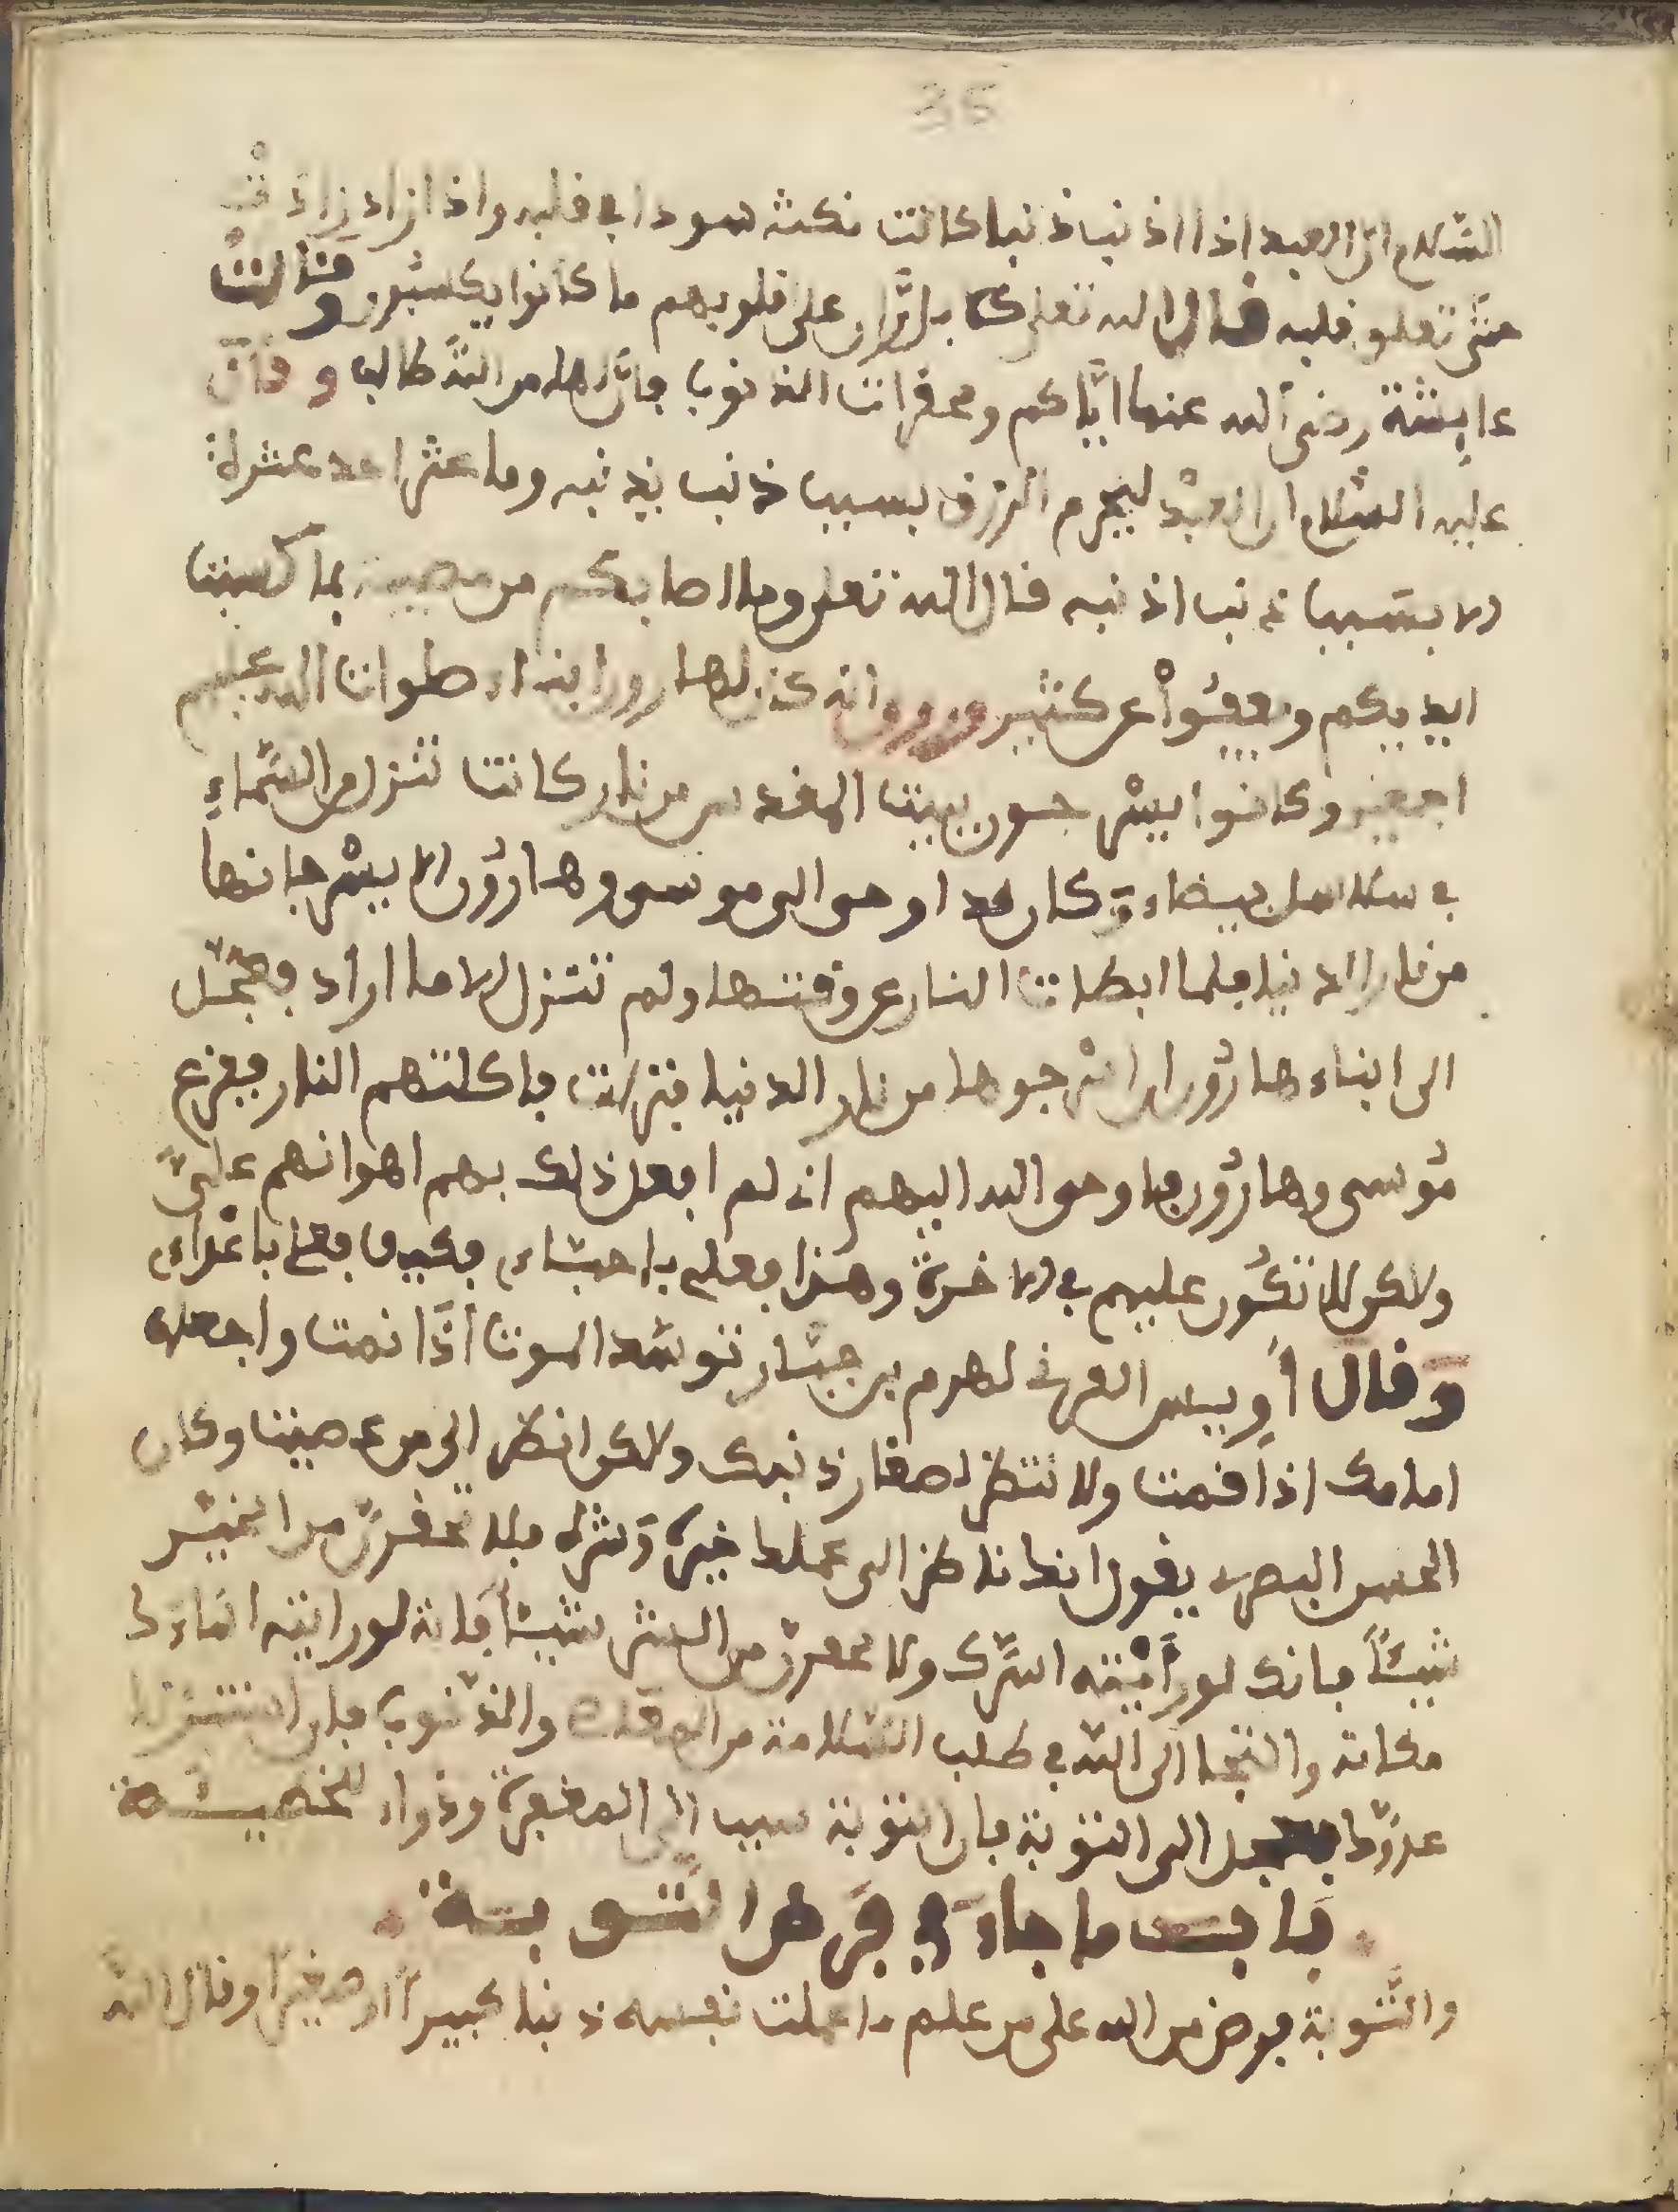 35
السلام ان العبد اذا اذنب ذنبا كانت نكتة سودا في قلبه واذا زاد زادت
حتى تعلو قلبه قال الله تعلى كلا بل ران على قلوبهم ما كانوا يكسبون وقالت
عايشة رضي الله عنها اياكم ومحقرات الذنوب فان لها من الله طالب وقال
عليه السلام ان العبد ليحرم الرزق بسبب ذنب يذنبه وما عثر احد عثرة
الا بسبب ذنب اذنبه قال الله تعلى وما اصابكم من مصيبة بما كسبت
ايديكم ويعفوا عن كثير وروي انه كان لهارون ابناء صلوات الله عليهم
اجمعين وكانوا يسرجون بيت المقدس من نار كانت تنزل من السماء
في سلاسل بيضاء وكان قد اوحى الى موسى وهارون الا يسرجانها
من نار الدنيا فلما ابطات النار عن وقتها ولم تنزل الا ما اراد فعجل
الى ابناء هارون ان اسرجوها من نار الدنيا فنزلت فاكلتهم النار ففزع
موسى وهارون فاوحى الله اليهم اني لم افعل ذلك بهم اهوانهم علي
ولاكن لئلا تكون عليهم في الاخرة وهذا فعلي باحبائي فكيف فعلي باعداي
وقال اويس القرني لهرم بن حيان توسد الموت اذا نمت واجعله
امامك اذا قمت ولا تنظر لصغار ذنبك ولاكن انظر الى من عصيت وكان
الحسن البصري يقول انك ناظر الى عملك خيره وشره فلا تحقرن من الخير
شيئا فانك لو رايته اسرك ولا تحقرن من الشر شيئا فانه لو رايته اساءك
مكانه والتجا الى الله في طلب السلامة من الوقت والذنوب فان استنزلك
عدوك فعجل الى التوبة فان التوبة سبب الى المغفرة ودواء للخطيئة
باب ما جاء في فرض التوبة
والتوبة فرض من الله على من علم ما عملت نفسه ذنبا كبيرا او صغيرا وقال الله